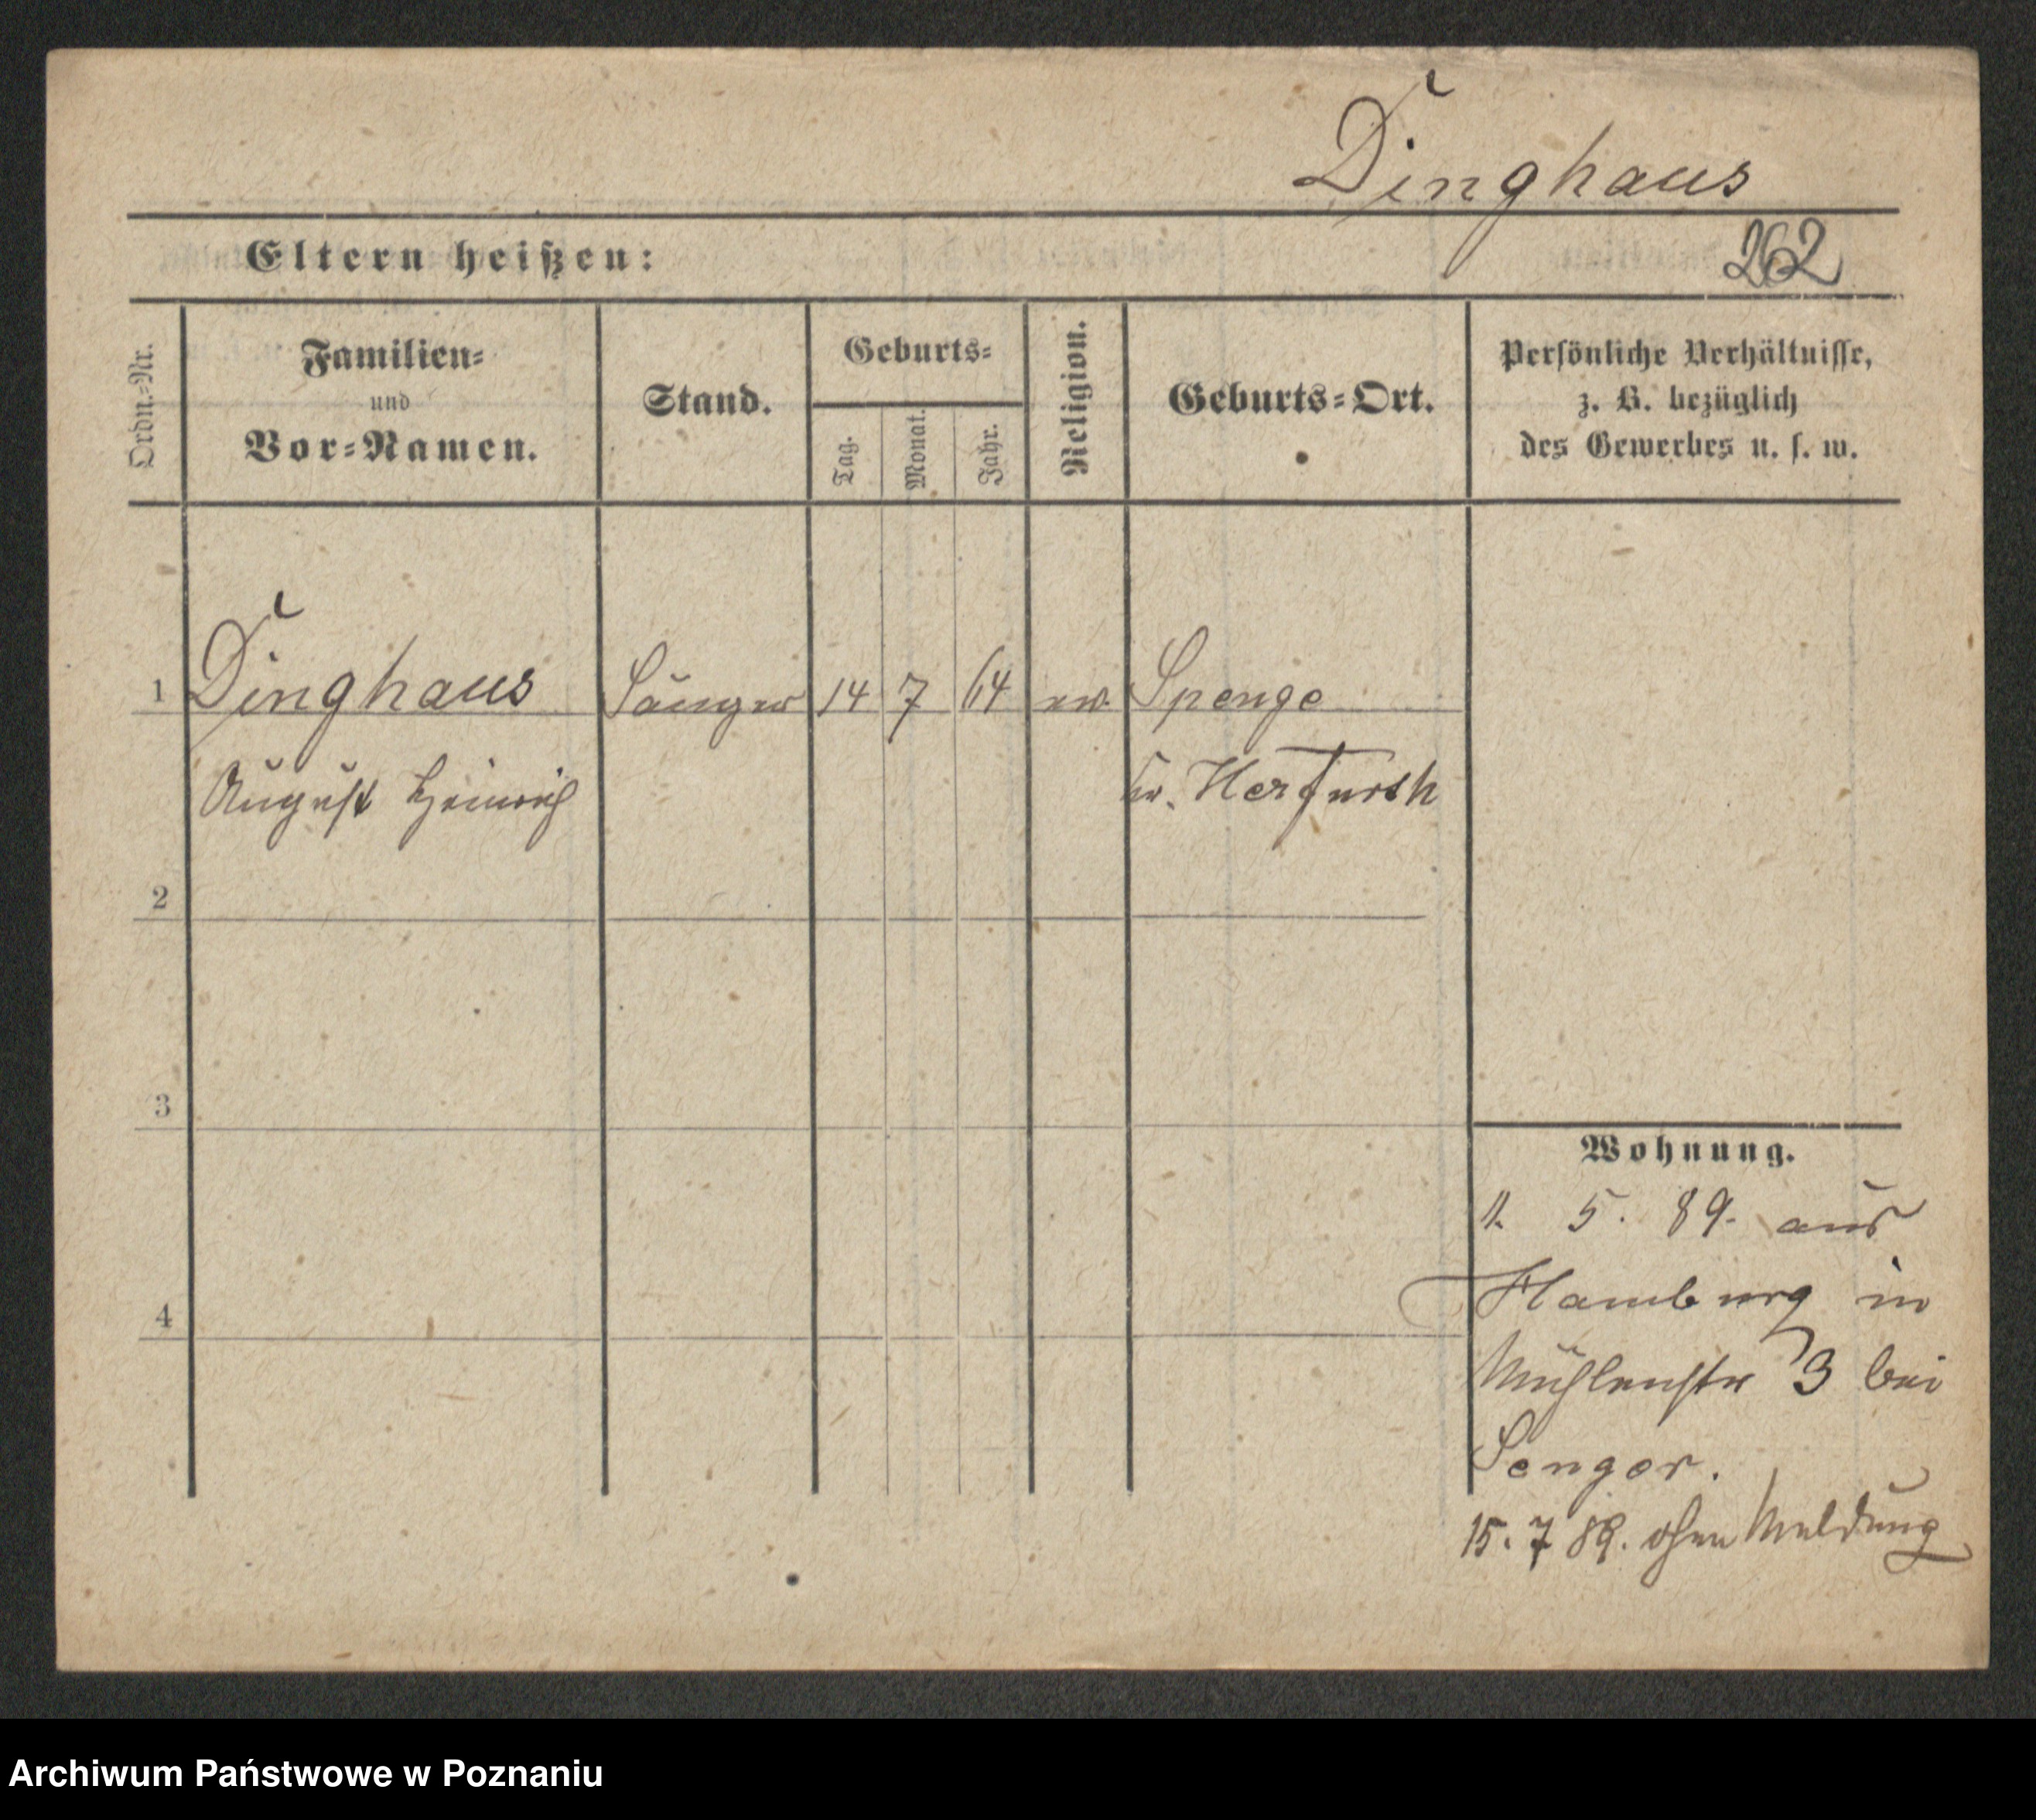 Dinghaus
262
Eltern heißen:
Ordn.-Nr.
Familien-
und
Vor-Namen.
Stand.
Geburts-
Tag.
Monat.
Jahr.
Religion.
Geburts-Ort.
Persönliche Verhältnisse,
z. B. bezüglich
des Gewerbes u. s. w.
1 Dinghaus Sänger 14 7 64 ev. Spenge
August Heinrich Kr. Herfurth
2
3
4
Wohnung.
1. 5. 89. aus
Hamburg in
Mühlenstr 3 bei
Senger.
15. 7 89. ohne Meldung
Archiwum Państwowe w Poznaniu